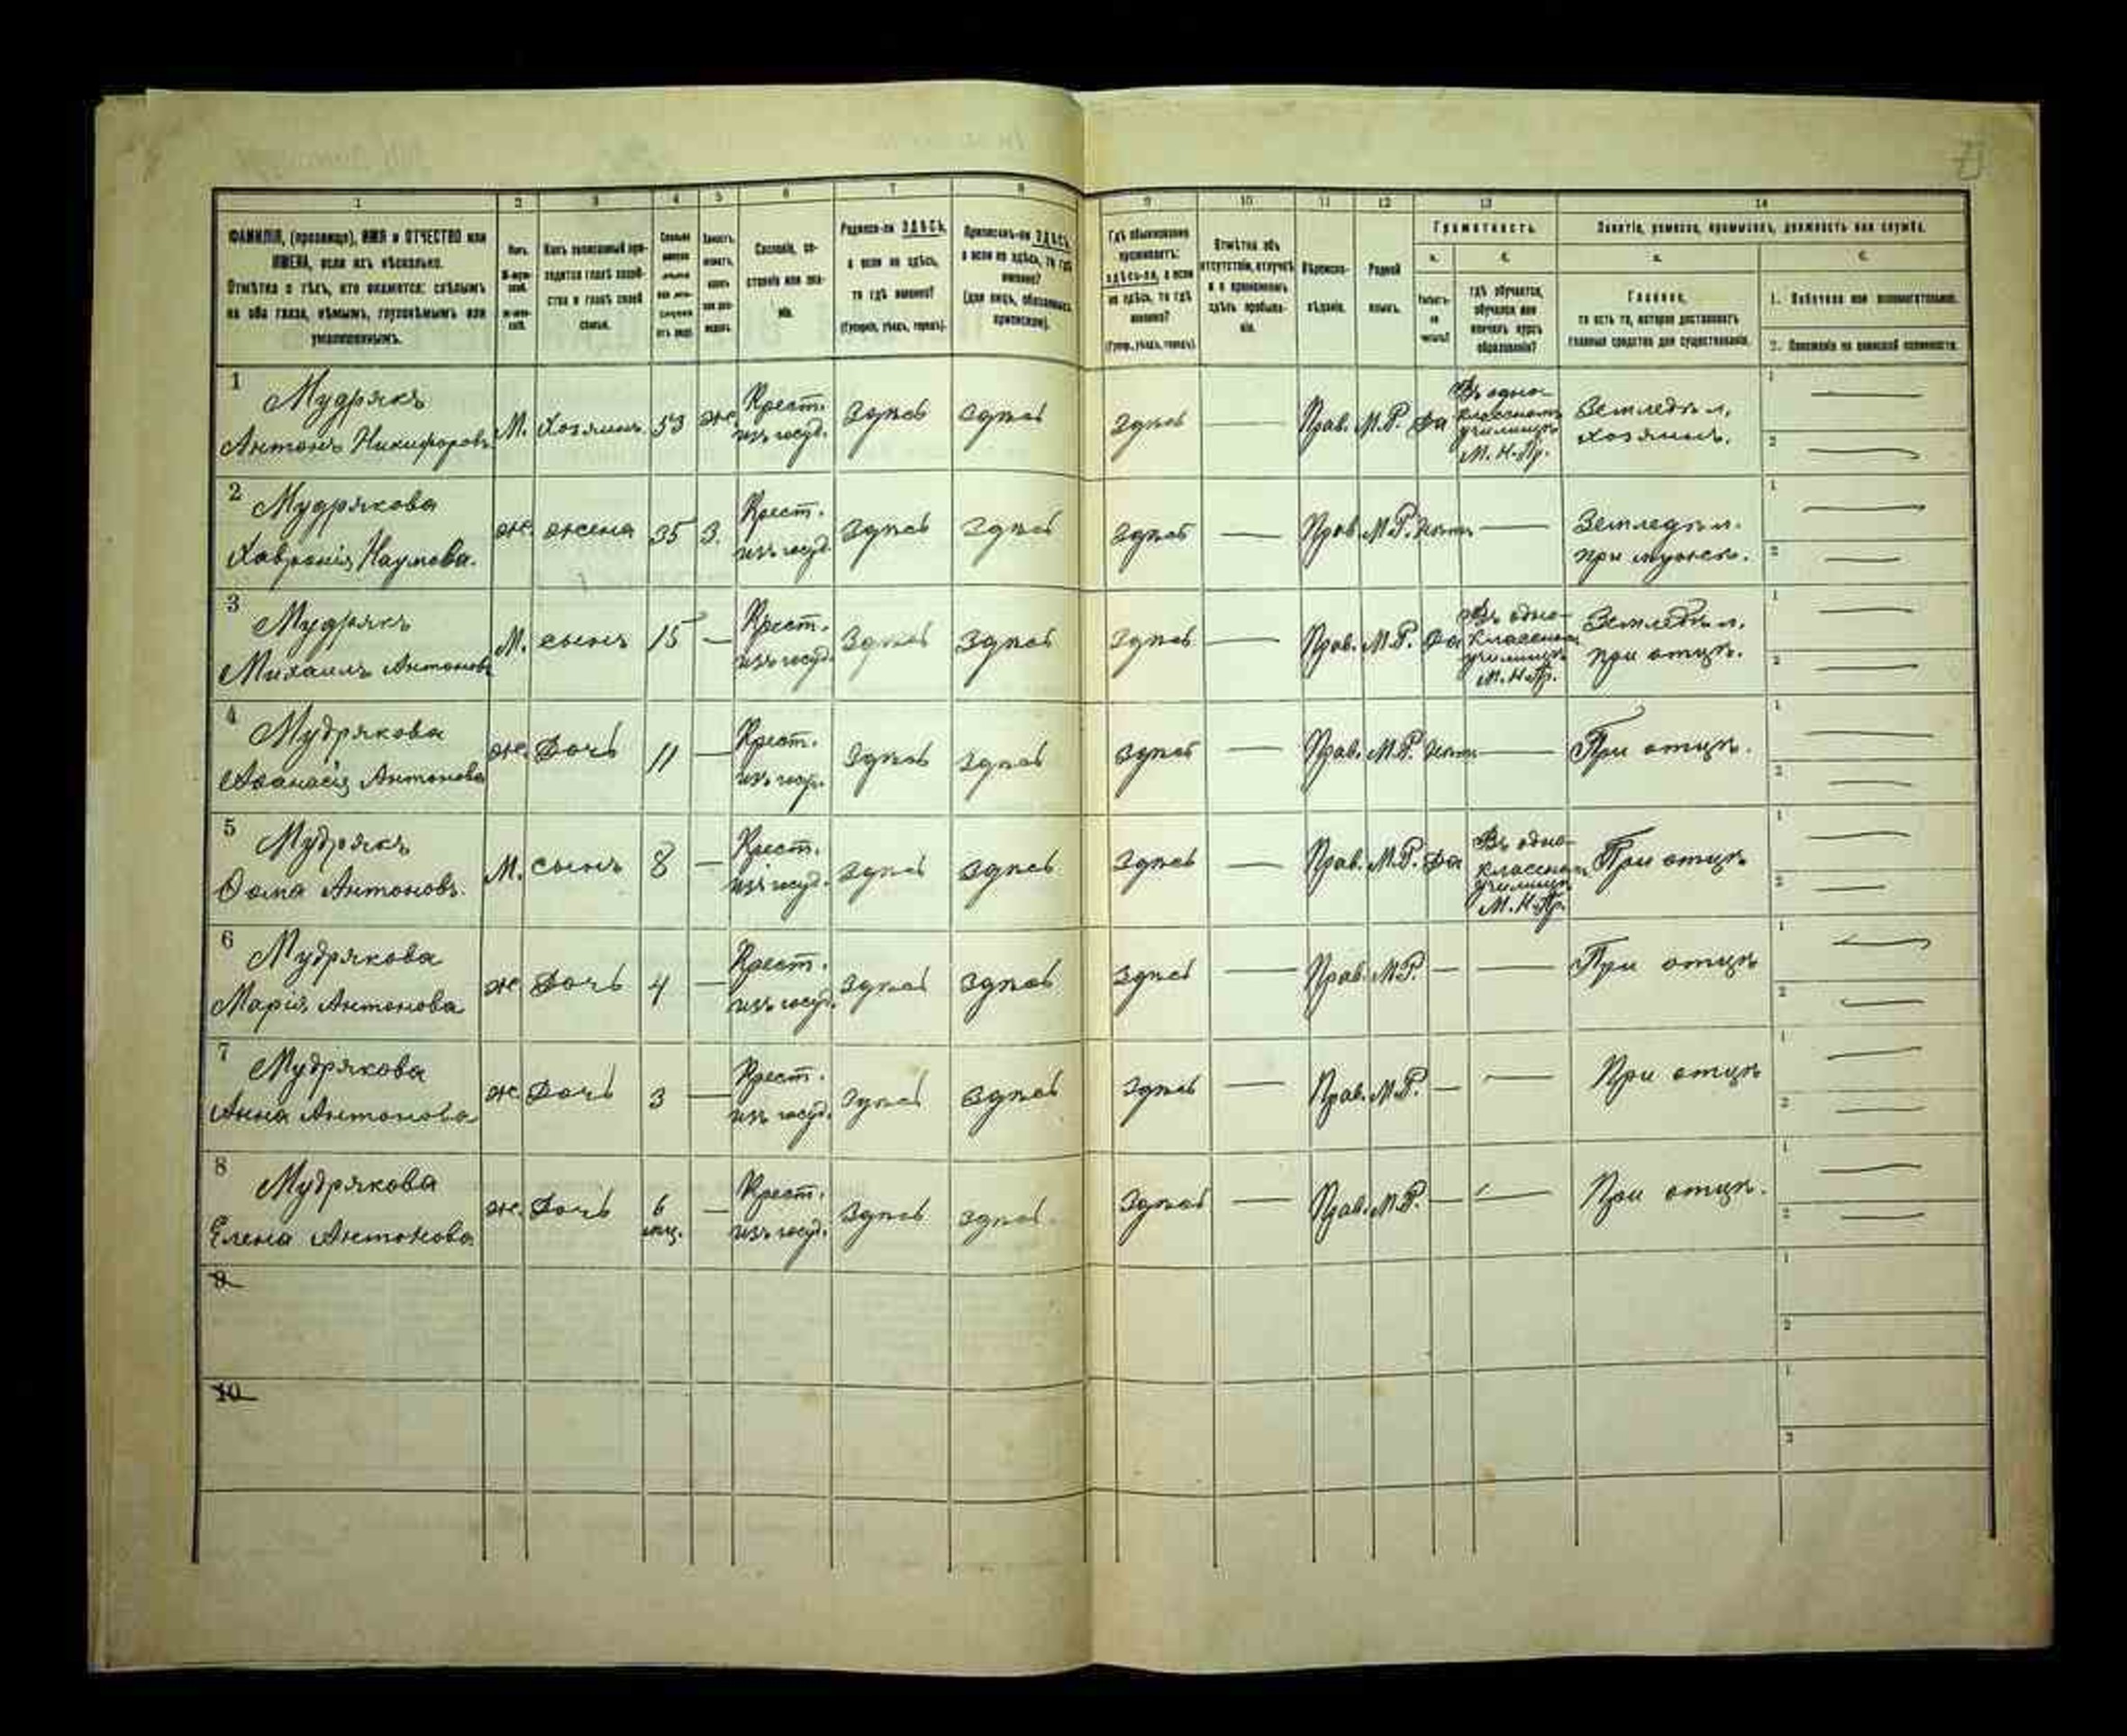 1 2 3 4 5 6 7 8 9 10 11 12 13 14
ФАМИЛІЯ, (прозвище), ИМЯ и ОТЧЕСТВО или
ИМЕНА, если ихъ нѣсколько.
Отмѣтка о тѣхъ, кто окажется: слѣпымъ
на оба глаза, нѣмымъ, глухонѣмымъ или
умалишеннымъ.
Какъ записанный при-
ходится главѣ хозяй-
ства и главѣ своей
семьи.
Сословіе, со-
стояніе или зва-
ніе.
Родился-ли ЗДѢСЬ,
а если не здѣсь,
то гдѣ именно?
(Губернія, уѣздъ, городъ).
Приписанъ-ли ЗДѢСЬ,
а если не здѣсь, то гдѣ
именно?
(для лицъ, обязанныхъ
припискою).
Гдѣ обыкновенно
проживаетъ:
здѣсь-ли, а если
не здѣсь, то гдѣ
именно?
(Губер., уѣздъ, городъ).
Отмѣтка объ
отсутствіи, отлучкѣ
и о временномъ
здѣсь пребыва-
ніи.
Вѣроиспо-
вѣданіе.
Родной
языкъ.
Грамотность.
а. б.
Умѣетъ-
ли
читать?
гдѣ обучается,
обучался или
кончилъ курсъ
образованія?
Занятіе, ремесло, промыселъ, должность или служба.
а. б.
Главное,
то есть то, которое доставляетъ
главныя средства для существованія.
1. Побочное или вспомогательное.
2. Положеніе по воинской повинности.
1 Мудрякъ
Антонъ Никифоровъ М. Хозяинъ 53 ж. Крест. изъ госуд. Здѣсь Здѣсь Здѣсь — Прав. М.Р. Да Въ одно-
классномъ
училищѣ
М. Н. Пр. Земледѣл.
хозяинъ. 1 — 2 —
2 Мудрякова
Хавронія Наумова. ж. жена 35 З. Крест. изъ госуд. Здѣсь Здѣсь Здѣсь — Прав. М.Р. Нѣтъ — Земледѣл.
при мужѣ. 1 — 2 —
3 Мудрякъ
Михаилъ Антоновъ М. сынъ 15 — Крест. изъ госуд. Здѣсь Здѣсь Здѣсь — Прав. М.Р. Да Въ одно-
классном.
училищѣ
М. Н. Пр. Земледѣл.
при отцѣ. 1 — 2 —
4 Мудрякова
Аѳанасія Антонова ж. Дочь 11 — Крест. изъ госуд. Здѣсь Здѣсь Здѣсь — Прав. М.Р. Нѣтъ — При отцѣ. 1 — 2 —
5 Мудрякъ
Ѳома Антоновъ. М. сынъ 8 — Крест. изъ госуд. Здѣсь Здѣсь Здѣсь — Прав. М.Р. Да Въ одно-
классном.
училищѣ
М. Н. Пр. При отцѣ 1 — 2 —
6 Мудрякова
Марія Антонова ж. Дочь 4 — Крест. изъ госуд. Здѣсь Здѣсь Здѣсь — Прав. М.Р. — — При отцѣ 1 — 2 —
7 Мудрякова
Анна Антонова ж. Дочь 3 — Крест. изъ госуд. Здѣсь Здѣсь Здѣсь — Прав. М.Р. — — При отцѣ 1 — 2 —
8 Мудрякова
Елена Антонова ж. Дочь 6 мѣц. — Крест. изъ госуд. Здѣсь Здѣсь. Здѣсь — Прав. М.Р. — — При отцѣ. 1 — 2 —
9 1 2
10 1 2